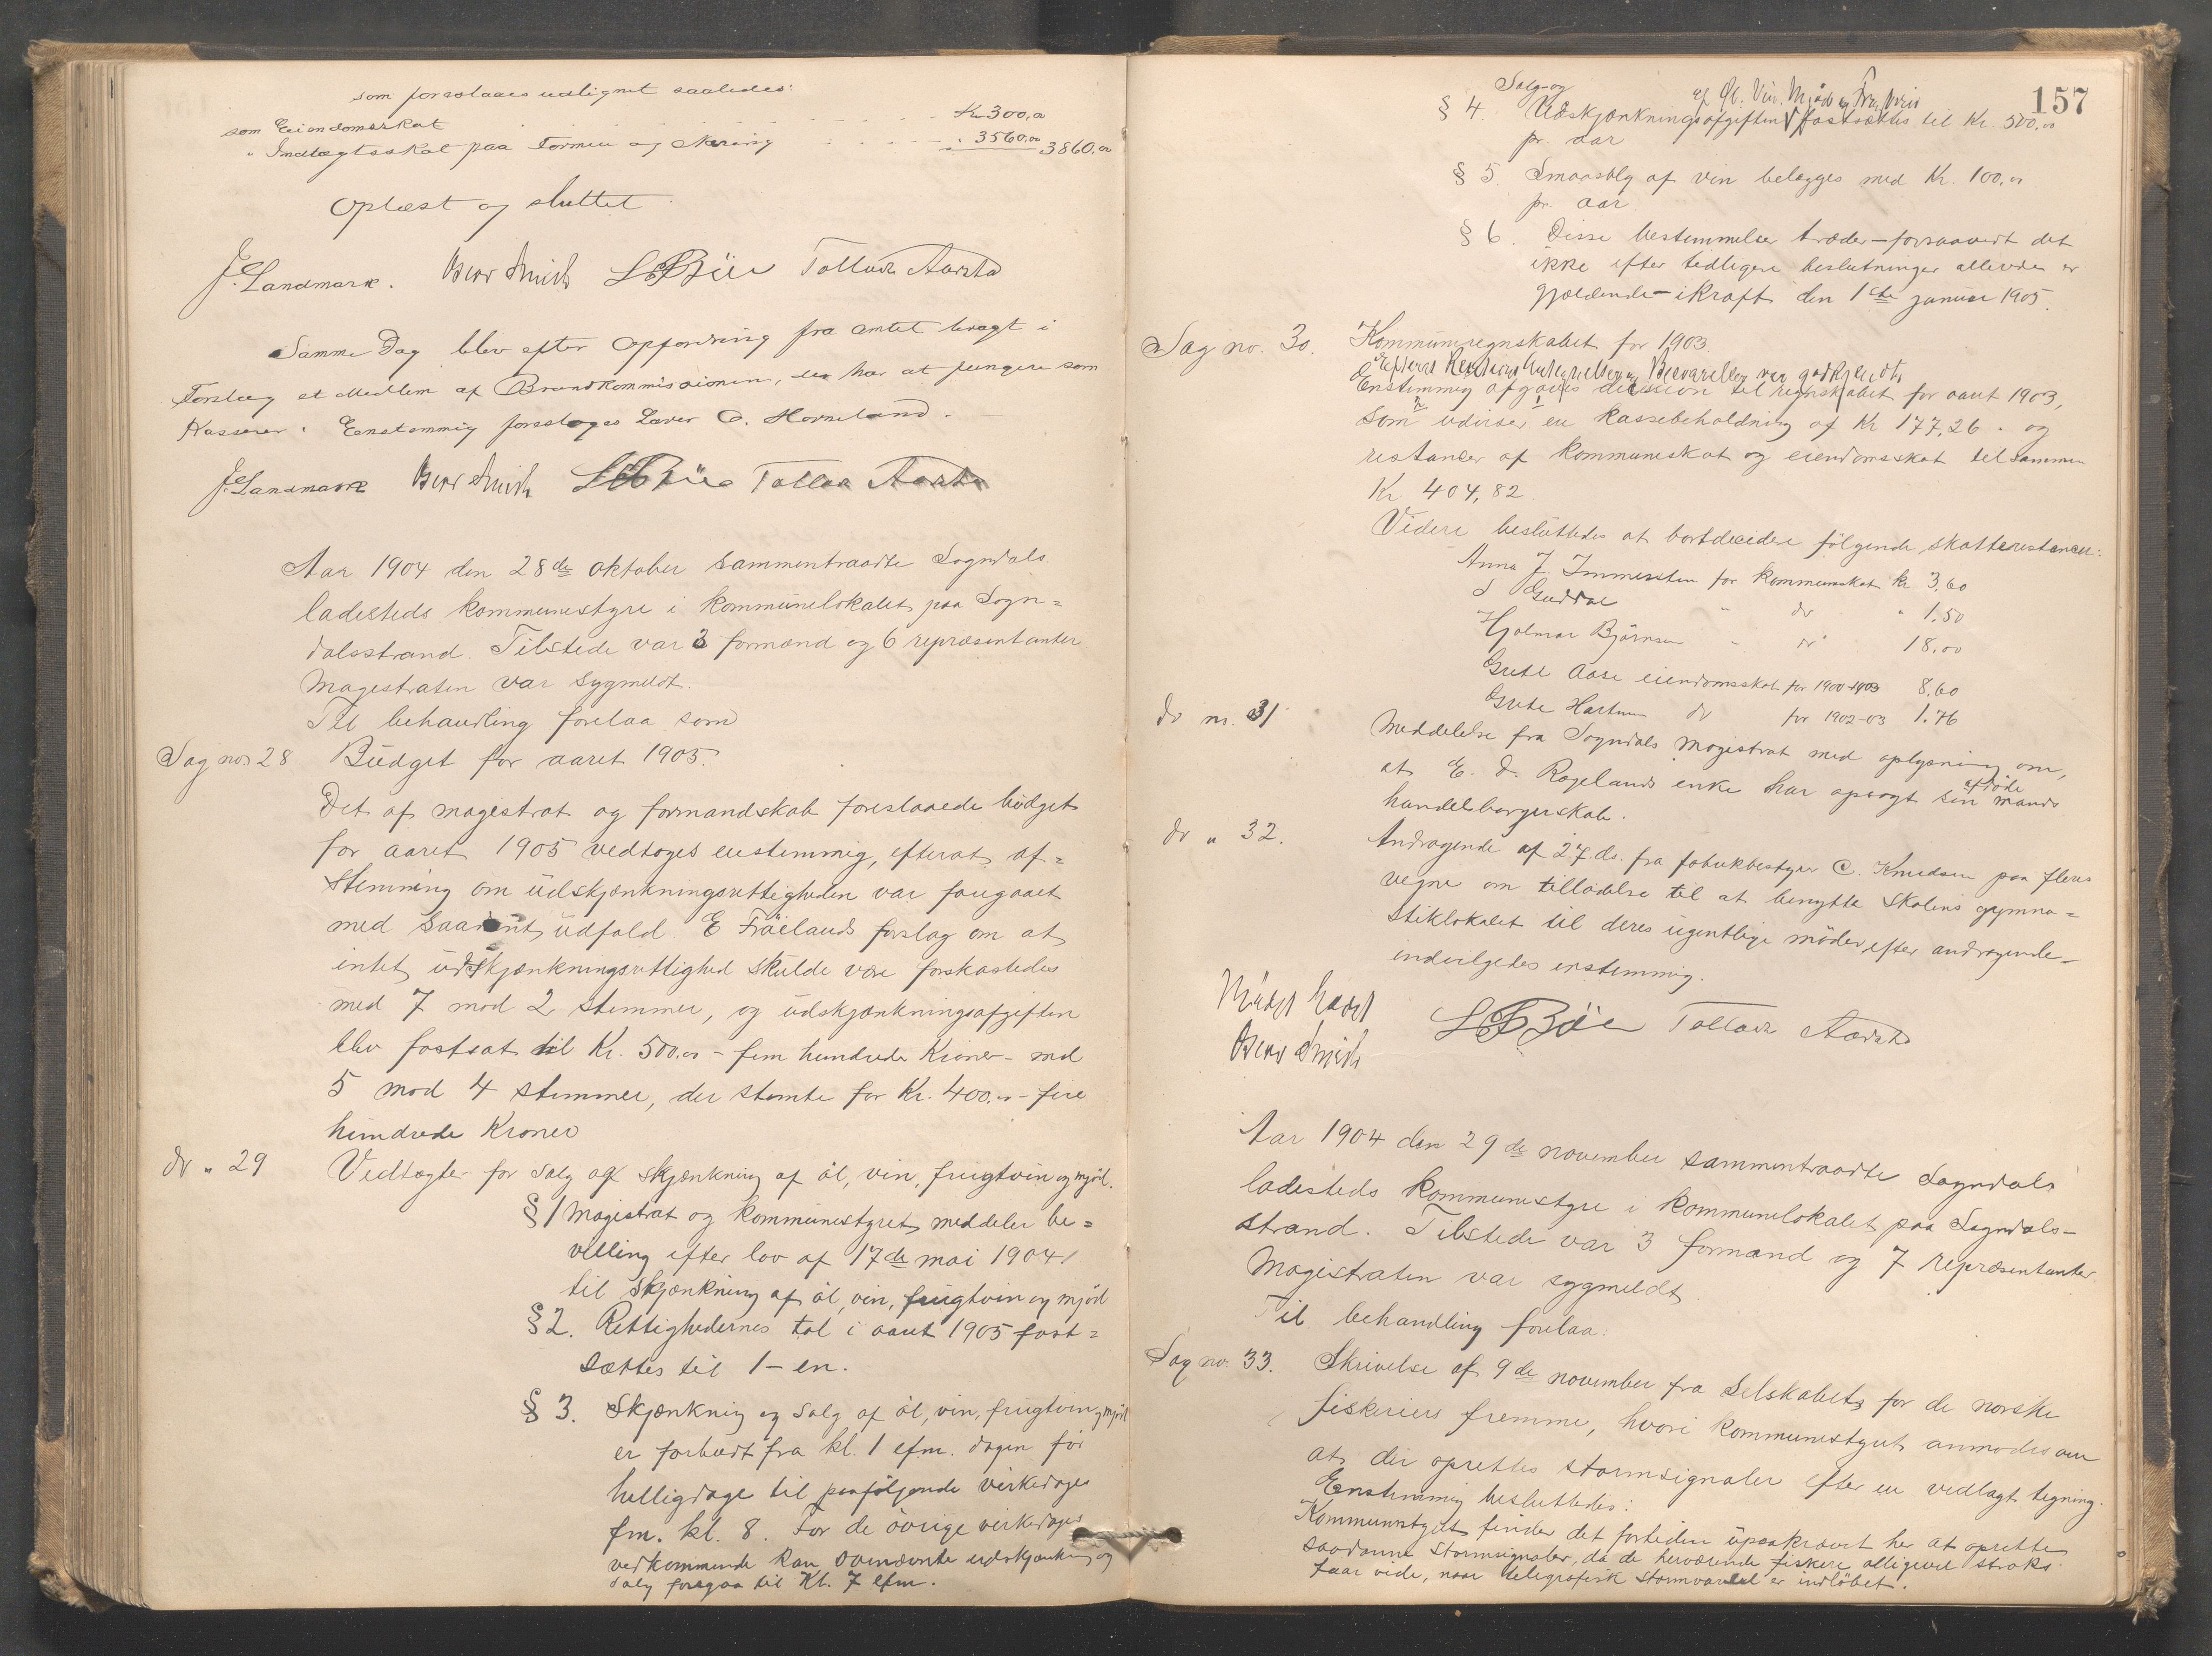 som foreslaaes udlignet saaledes:
som Eiendomsskat Kr 300,00
" Indtægtsskat paa Formue og Næring " 3560,00 3860,00
Oplæst og sluttet.
J. Landmark. Oscar Smith L B Böe Tollak Aarstad
Samme Dag blev efter Opfordring fra Amtet bragt i
Forslag et Medlem af Brandkommissionen, der har at fungere som
Kasserer. Eenstemmig foreslages Lærer O. Horneland.
J. Landmark Oscar Smith L B Böe Tollak Aarstad
Aar 1904 den 28de oktober sammentraadte Sogndals
ladesteds kommunestyre i kommunelokalet paa Sogn=
dalsstrand. Tilstede var 3 formænd og 6 repræsentanter
Magestraten var sygmeldt.
Til behandling forelaa som
Sag no 28 Budget for aaret 1905.
Det af magistrat og formandskab foreslaaede budget
for aaret 1905 vedtoges enstemmig, efterat af=
stemning om udskjænkningsrettigheden var foregaaet
med saadant udfald E Fröilands forslag om at
intet udskjænkningsrettighed skulde være forkastedes
med 7 mod 2 stemmer, og udskjænkningsafgiften
blev fastsat til Kr. 500.00 - fem hundrede Kroner - med
5 mod 4 stemmer, der stemte for Kr. 400.00 - fire
hundrede Kroner
do " 29 Vedtægter for salg og skjænkning af öl, vin, frugtvin og mjöd.
§ 1 Magistrat og kommunestyret meddeler be=
villing efter lov af 17de mai 1904
til skjænkning af öl, vin, frugtvin og mjöd
§ 2. Rettighedernes tal i aaret 1905 fast=
sættes til 1 - en.
§ 3. Skjænkning og salg af öl, vin, frugtvin og mjöd
er forbudt fra kl. 1 efm. dagen för
helligdage til paafölgende virkedages
fm. kl. 8. For de övrige virkedages
vedkommende kan ovennævnte udskjænkning og
salg foregaa til Kl. 7 efm.
157
Salg og af Öl. Vin. Mjöd og Frugtvin
§ 4. Udskjænkningsafgiften fastsættes til Kr. 500,00
pr. aar
§ 5. Smaasalg af vin belægges med Kr. 100,00
pr. aar
§ 6. Disse bestemmelser træder - forsaavidt det
ikke efter tidligere beslutninger allerede er
gjældende - ikraft den 1ste januar 1905.
Sag no. 30. Kommuneregnskabet for 1903.
Efterat Revisions Antegnelser og Besvarelser var godkjendt,
Enstemmig afgaves decission til regnskabet for aaret 1903,
som udviser en kassebeholdning af Kr 177,26. og
restancer af kommuneskat og eiendomsskat tilsammen
Kr 404,82.
Videre besluttedes at bortdecidere fölgende skatterestancer:
Anna J. Immerstein for kommuneskat kr 3,60
S Guddal " do " 1.50
Hjalmar Björnsen " do 18.00
Grete Aase eiendomsskat for 1900-1903 8,60
Grete Hartun do for 1902-03 1.76
do nr. 31 Meddelelse fra Sogndals magistrat med oplysning om,
at E. D. Rogelands enke har opsagt sin afdöde mands
handelsborgerskab.
do " 32. Andragende af 27. ds. fra fabrikbestyrer C. Knudsen paa fleres
vegne om tilladelse til at benytte skolens gymna=
stiklokalet til deres ugentlige möder, efter andragende -
indvilgedes enstemmig.
L B Böe Tollak Aarstad
Oscar Smith
Aar 1904 den 29de november sammentraadte Sogndals
ladesteds kommunestyre i kommunelokalet paa Sogndals-
strand. Tilstede var 3 formænd og 7 repræsentanter.
Magistraten var sygmeldt.
Til behandling forelaa:
Sag no. 33. Skrivelse af 9de november fra Selskabet for de norske
fiskeriers fremme, hvori kommunestyret anmodes om
at der oprettes stormsignaler efter en vedlagt tegning.
Enstemmig besluttedes:
Kommunestyret finder det fortiden upaakrævet her at oprette
saadanne stormsignaler, da de herværende fiskere alligevel straks
faar vide, naar telegrafisk stormvarsel er indlöbet.